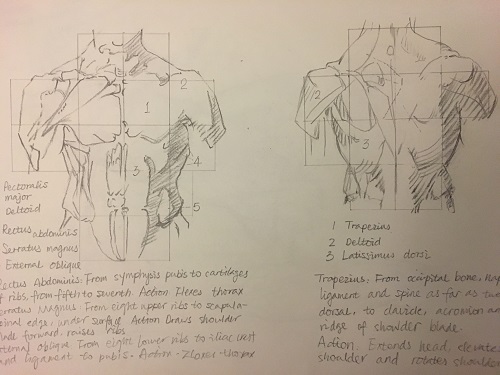 1
2
3
4
5
Pectoralis
major
Deltoid
Rectus abdominis
Serratus magnus
External oblique
Rectus Abdominis: From symphysis pubis to cartilages
of ribs, from fifth to seventh Action Flexes thorax
Serratus Magnus: From eight upper ribs to scapula-
inal edge, under surface Action Draws shoulder
blade forward, raises ribs
External Oblique. From eight lower ribs to iliac crest
and ligament to pubis. Action -
2
3
1 Trapezius
2 Deltoid
3 Latissimus dorsi
Trapezius, From occipital bone, nap
ligament and spine as far as tw
dorsal, to clavicle, acromion an
ridge of shoulder blade.
Action. Extends head, elevate
shoulder and rotates shoulde